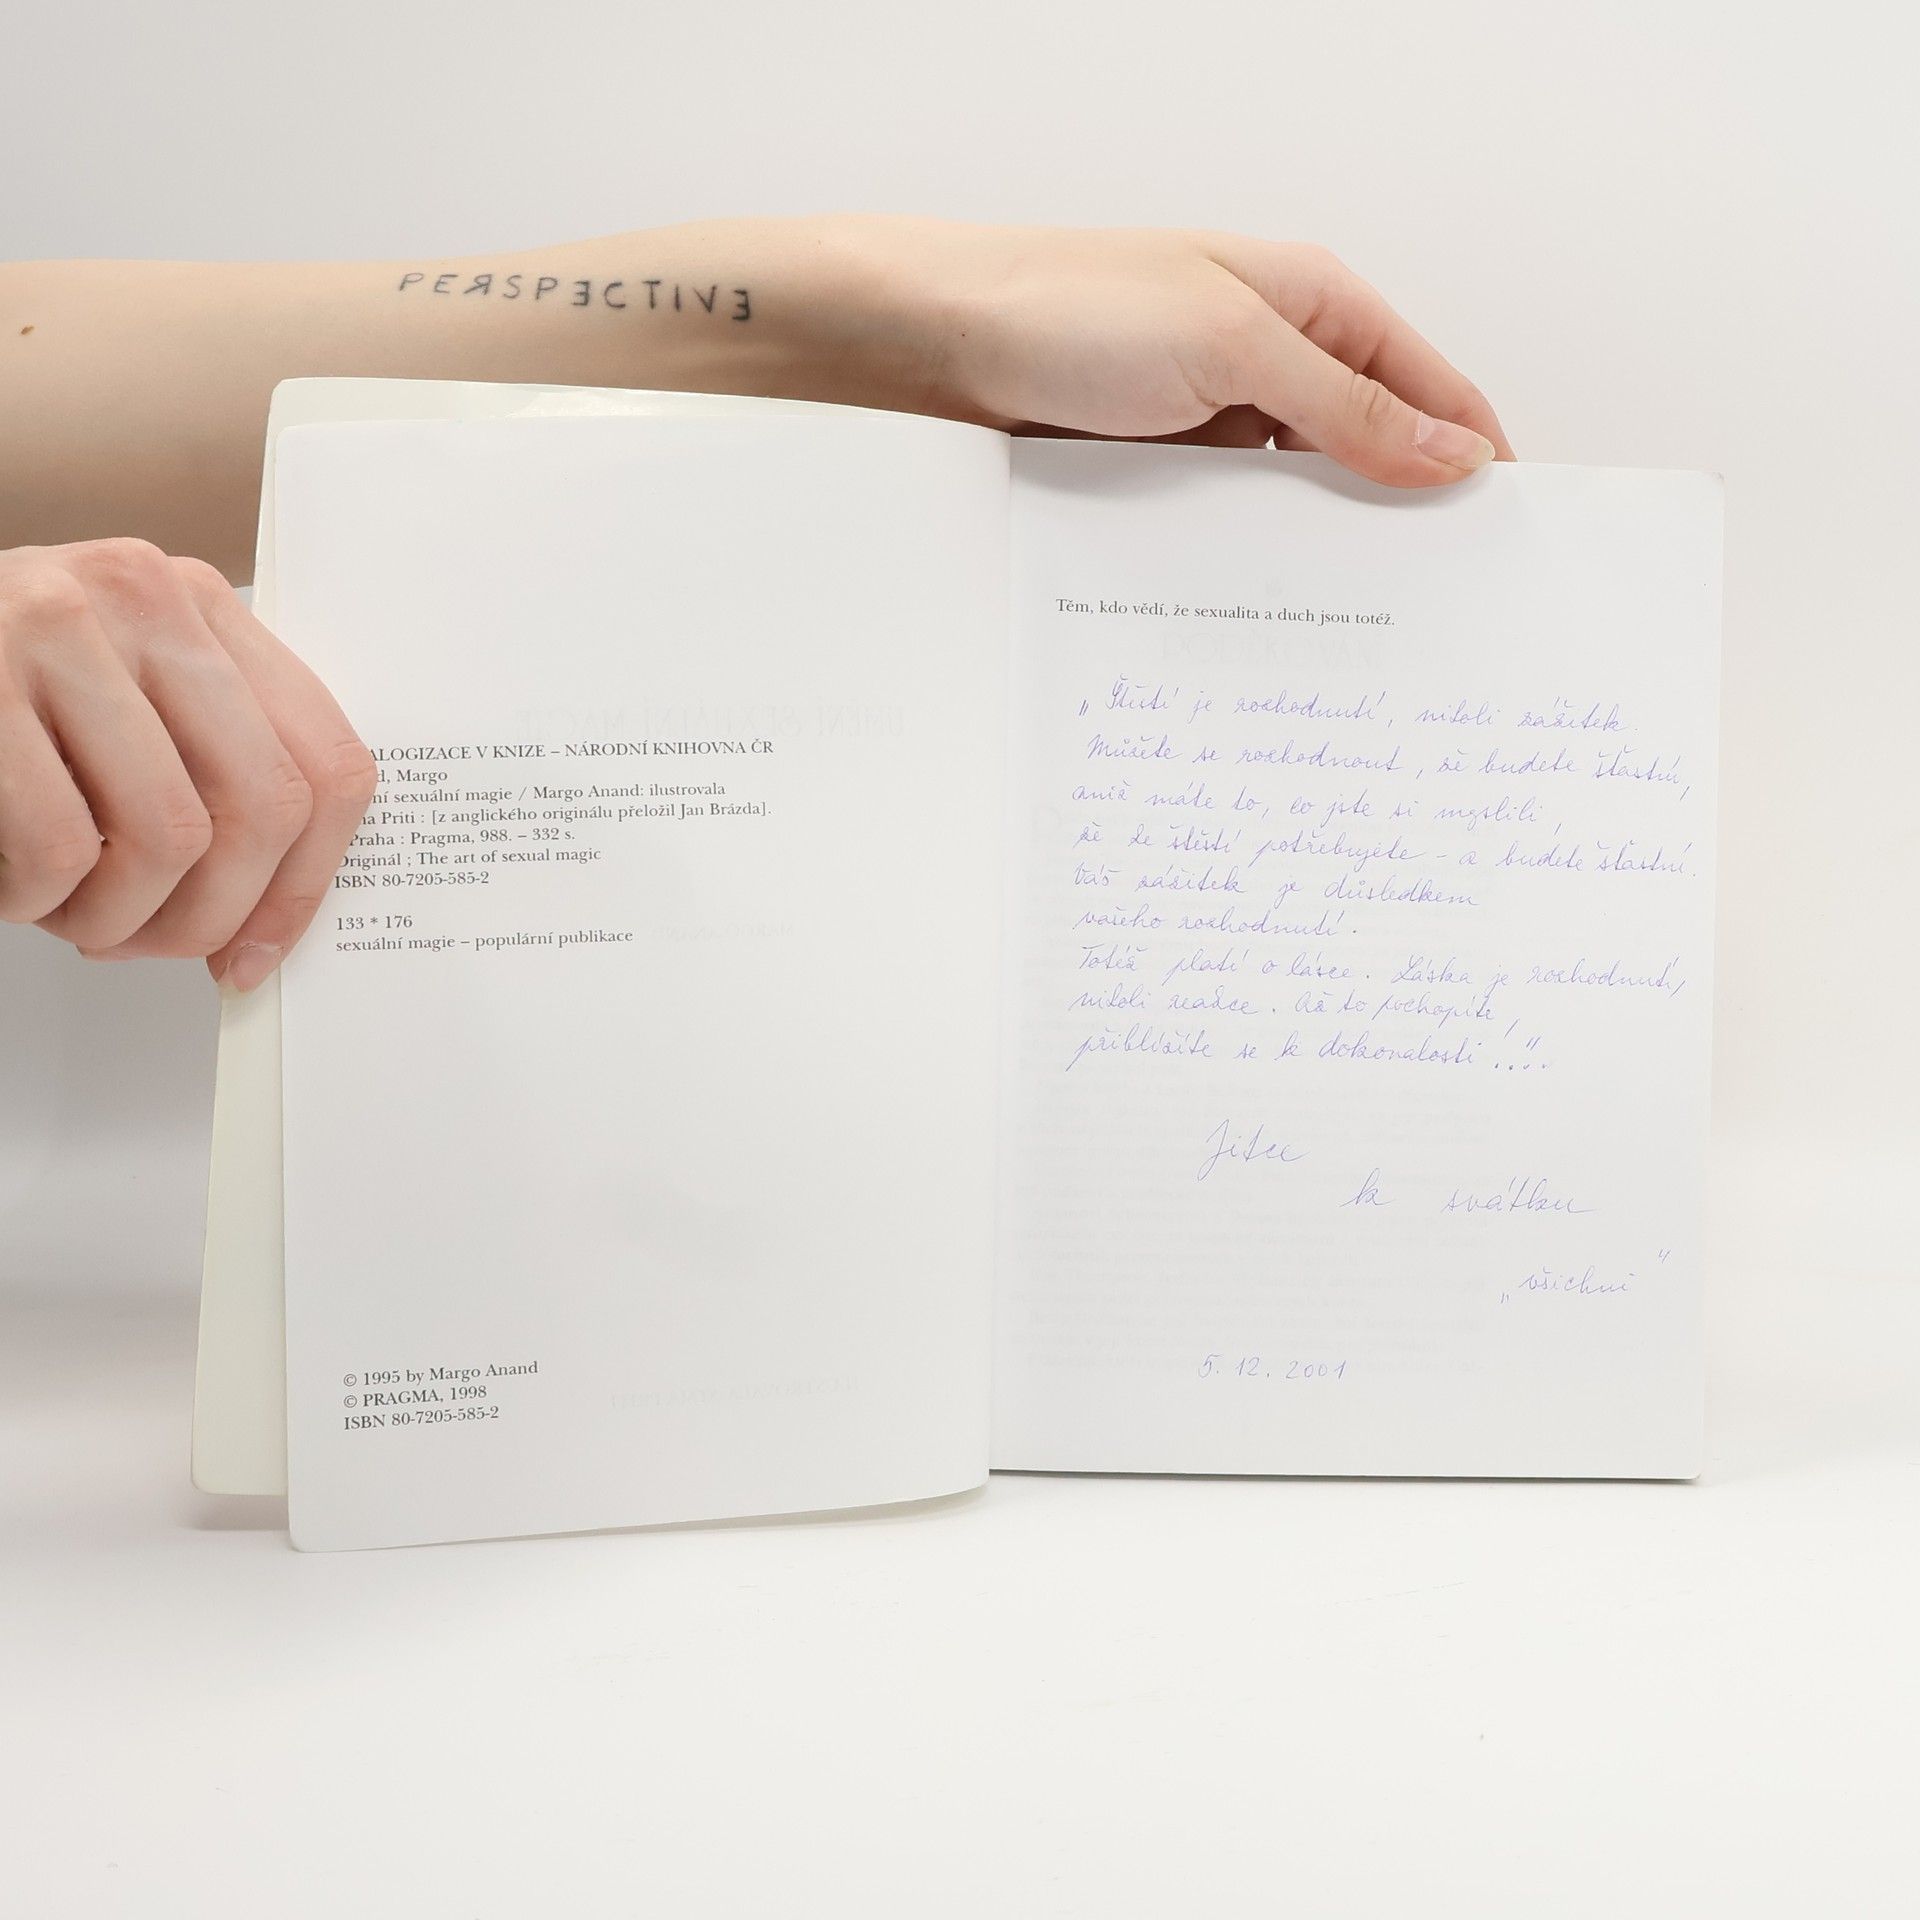 PEЯSPƎCTIVƎ
ALOGIZACE V KNIZE – NÁRODNÍ KNIHOVNA ČR
d, Margo
ní sexuální magie / Margo Anand: ilustrovala
na Priti : [z anglického originálu přeložil Jan Brázda].
Praha : Pragma, 988. – 332 s.
Originál ; The art of sexual magic
ISBN 80-7205-585-2
133 * 176
sexuální magie – populární publikace
© 1995 by Margo Anand
© PRAGMA, 1998
ISBN 80-7205-585-2
Těm, kdo vědí, že sexualita a duch jsou totéž.
„Štěstí je rozhodnutí, nikoli zážitek.
Můžete se rozhodnout, že budete šťastní,
aniž máte to, co jste si mysleli,
že ke štěstí potřebujete – a budete šťastní.
Váš zážitek je důsledkem
vašeho rozhodnutí.
Totéž platí o lásce. Láska je rozhodnutí,
nikoli reakce. Až to pochopíte,
přiblížíte se k dokonalosti!..."
Jitce
k svátku
„všichni"
5. 12. 2001